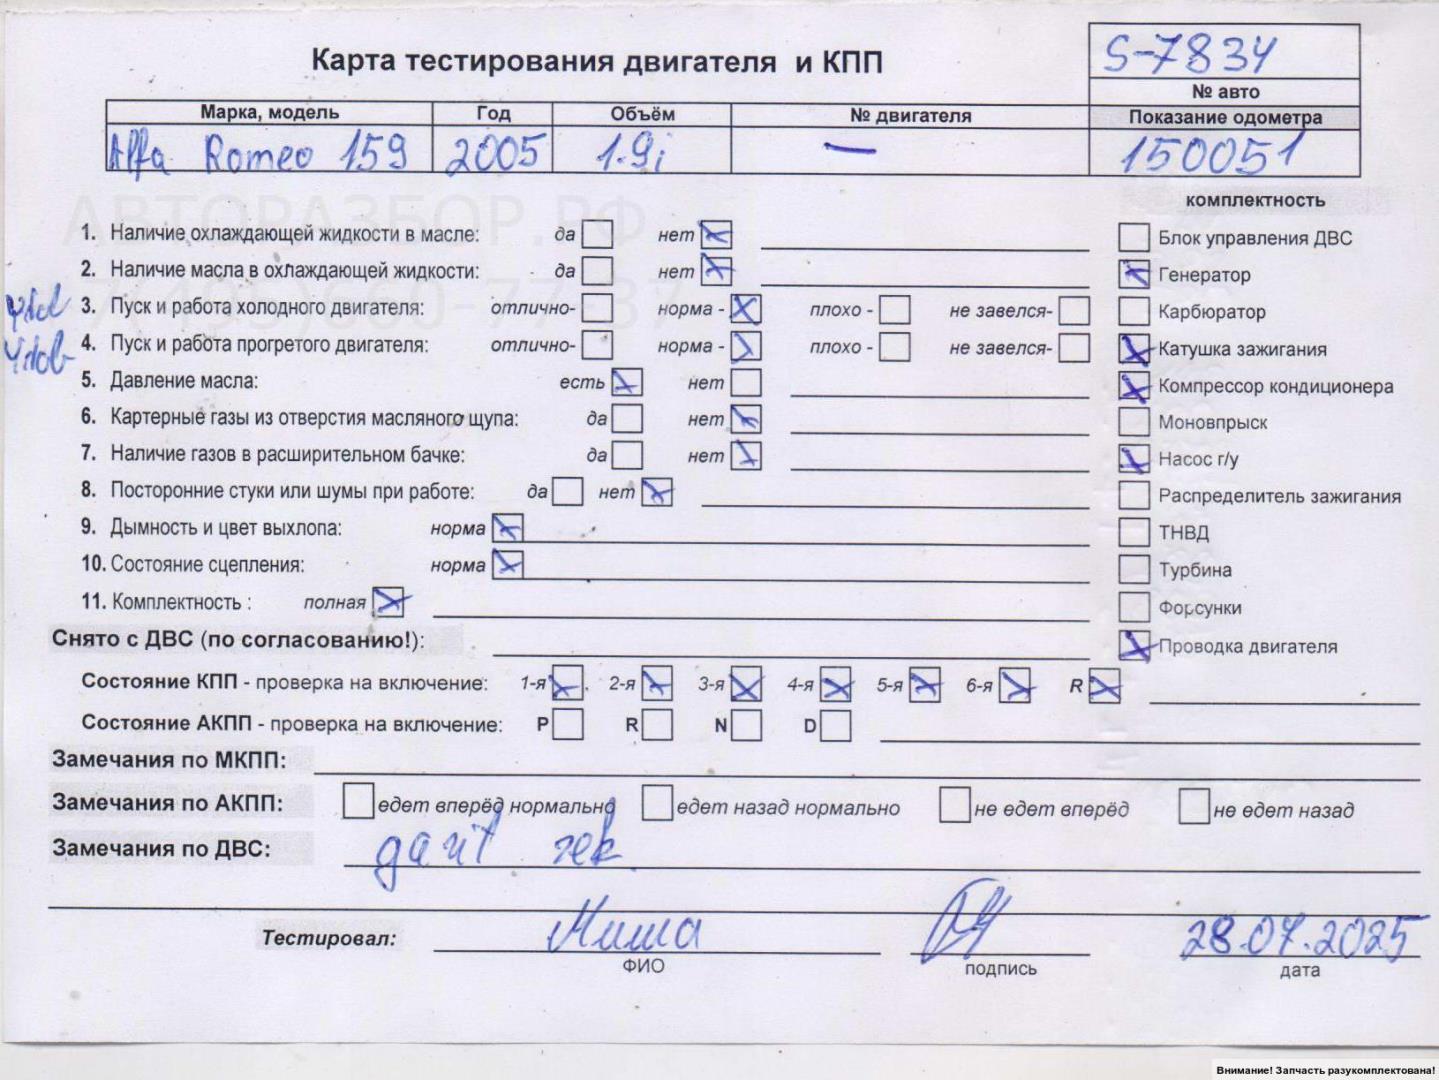 S-7834
Карта тестирования двигателя и КПП
№ авто
Марка, модель Год Объём № двигателя Показание одометра
Alfa Romeo 159 2005 1.9i — 150051
АВТОРАЗБОР.РФ
комплектность
1. Наличие охлаждающей жидкости в масле: да нет Блок управления ДВС
2. Наличие масла в охлаждающей жидкости: да нет Генератор
3. Пуск и работа холодного двигателя: отлично- норма - плохо - не завелся- Карбюратор
4. Пуск и работа прогретого двигателя: отлично- норма - плохо - не завелся- Катушка зажигания
5. Давление масла: есть нет Компрессор кондиционера
6. Картерные газы из отверстия масляного щупа: да нет Моновпрыск
7. Наличие газов в расширительном бачке: да нет Насос г/у
8. Посторонние стуки или шумы при работе: да нет Распределитель зажигания
9. Дымность и цвет выхлопа: норма ТНВД
10. Состояние сцепления: норма Турбина
11. Комплектность : полная Форсунки
Снято с ДВС (по согласованию!): Проводка двигателя
Состояние КПП - проверка на включение: 1-я 2-я 3-я 4-я 5-я 6-я R
Состояние АКПП - проверка на включение: P R N D
Замечания по МКПП:
Замечания по АКПП: едет вперёд нормально едет назад нормально не едет вперёд не едет назад
Замечания по ДВС:
Тестировал: Миша 28.07.2025
ФИО подпись дата
Внимание! Запчасть разукомплектована!